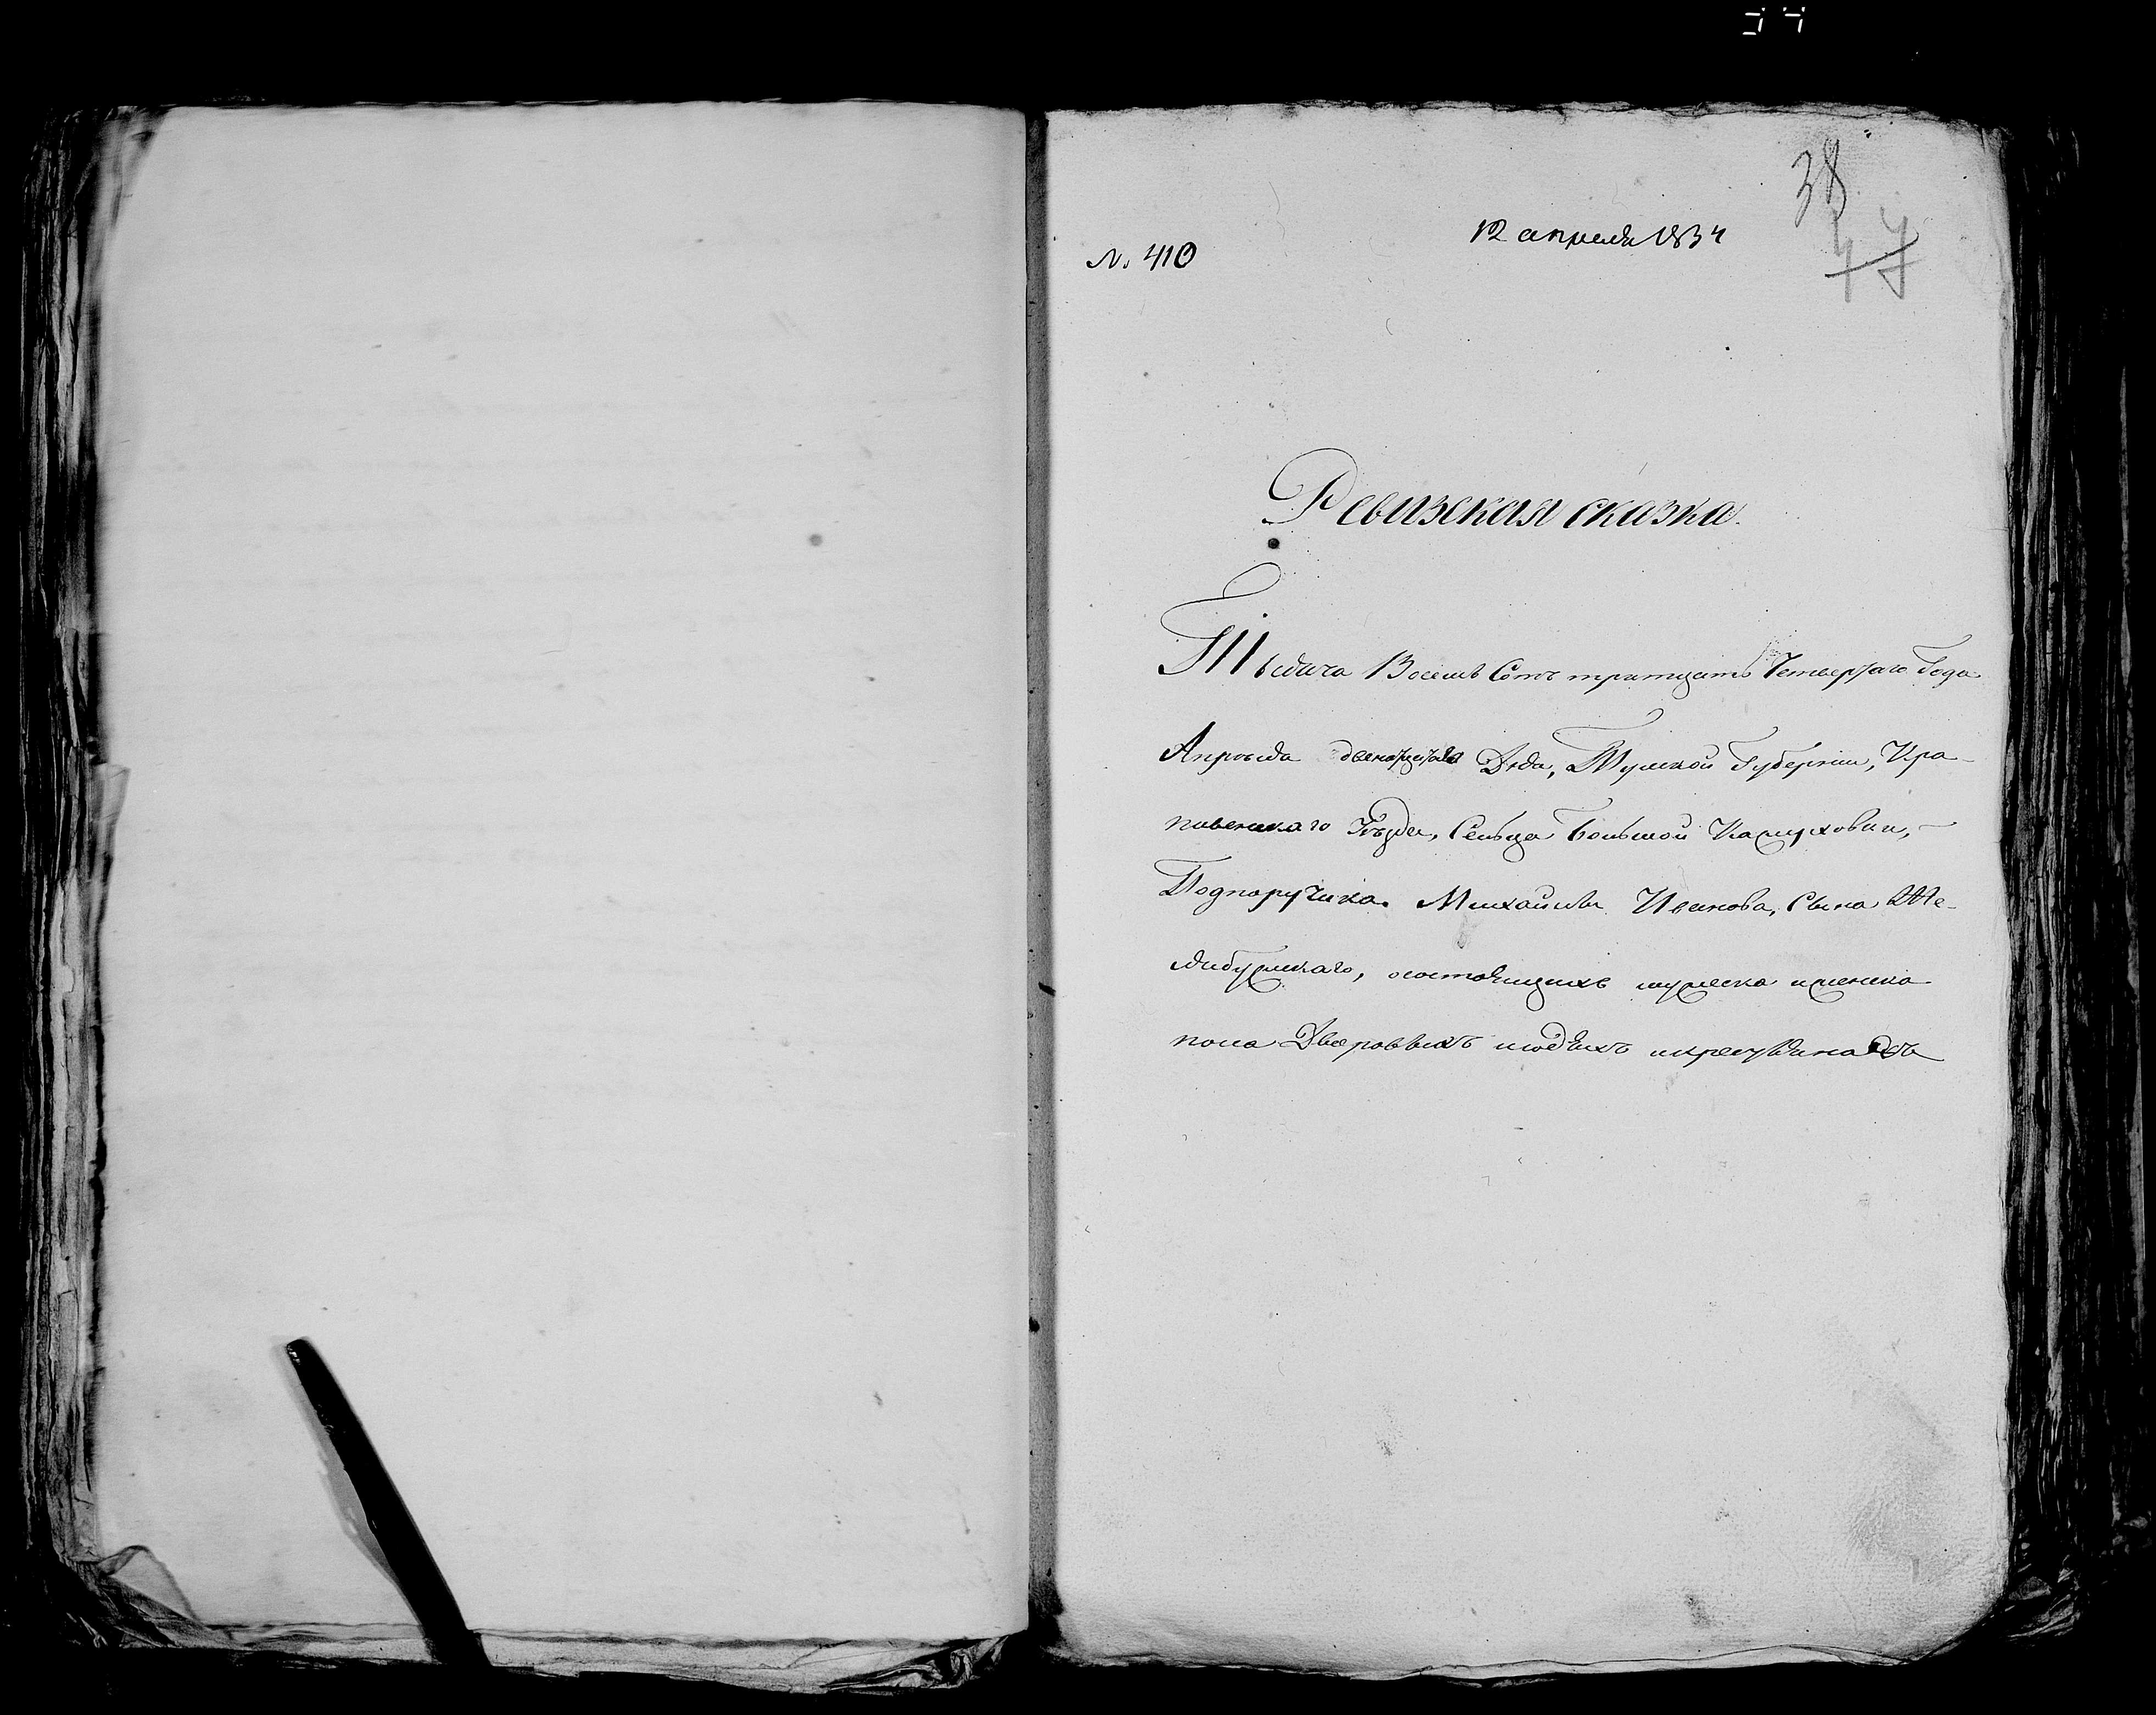 38
12 апреля 1834
№ 410
47
Ревизская сказка.
Тысича Восемь Сотъ тритцать Четвертаго Года
Апреля двенатцатаго Дня, Тульской Губернии, Кра-
пивенскаго Уѣзда, Сельца Большой Кажуховки,
Подпоручика Михайлы Иванова, Сына Ме-
состоящихъ мужеска и женска
пола Дворовыхъ людяхъ и крестьянахъ